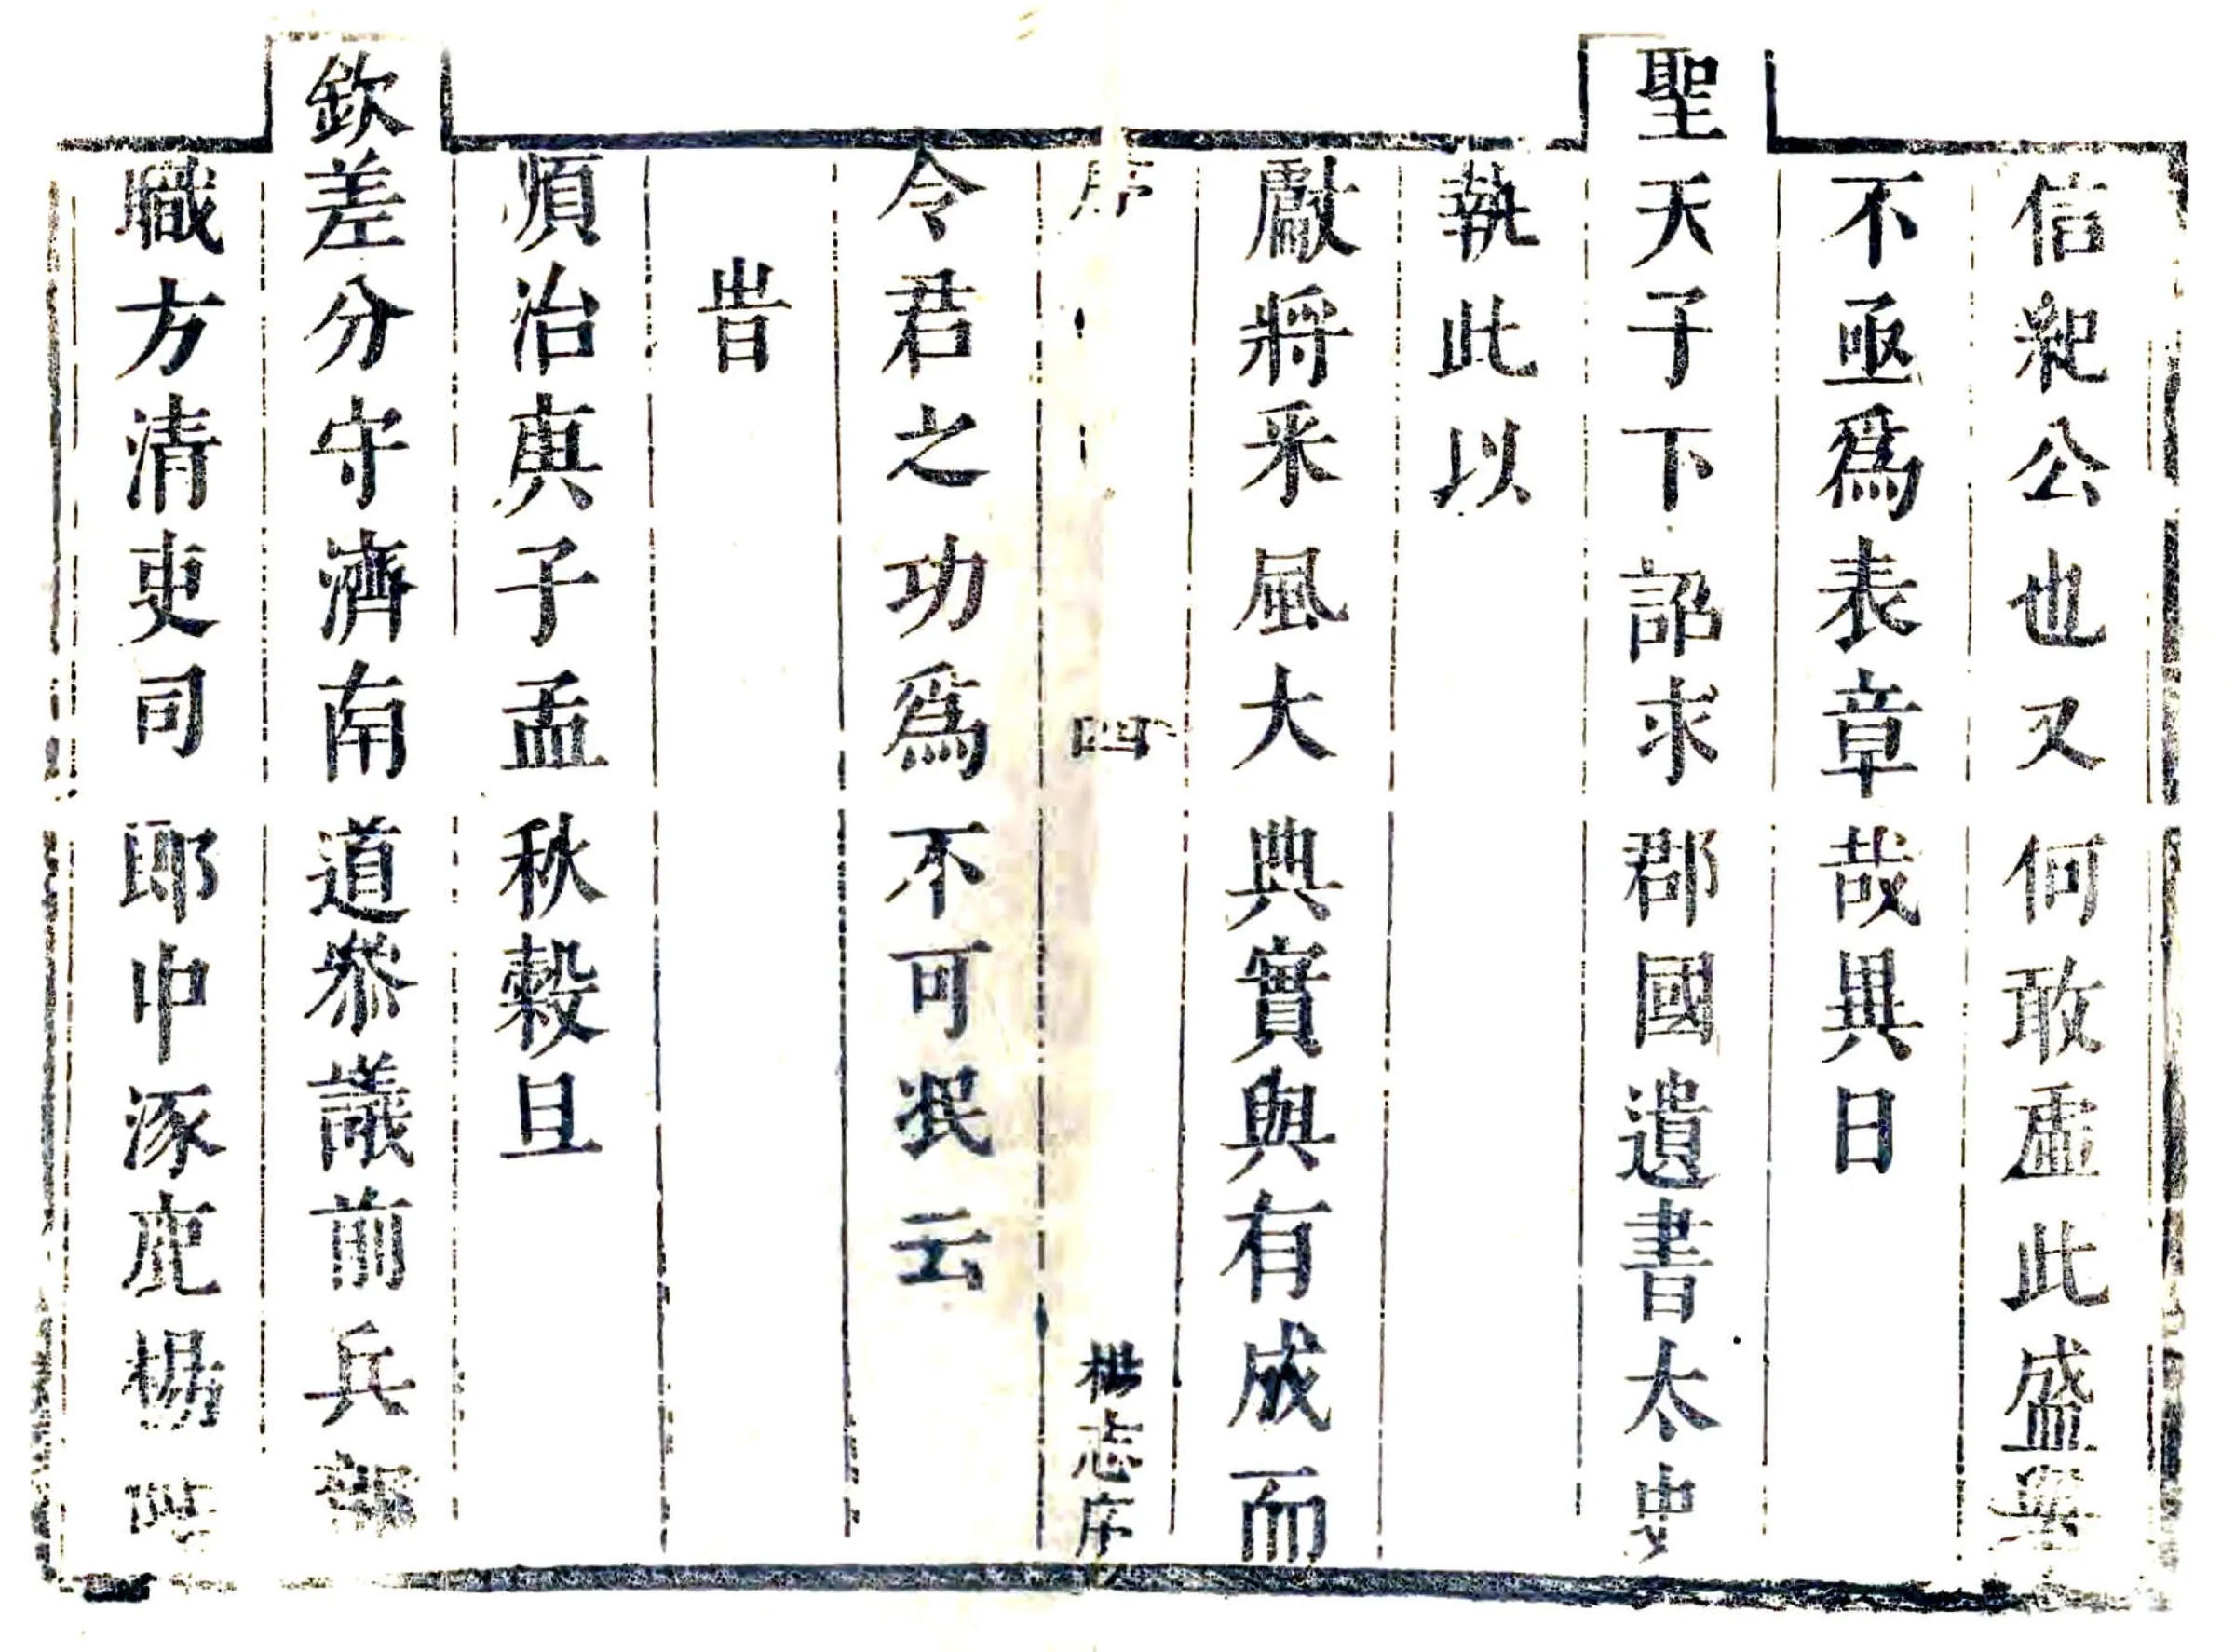 信起公也又何敢虛此盛舉
不亟爲表章哉異日
聖天子下詔求郡國遺書太史
執此以
獻將釆風大典實與有成而
序
四
志序
令君之功爲不可泯云
旹
順治庚子孟秋穀旦
欽差分守濟南道叅議前兵部
職方清吏司郎中涿鹿楊